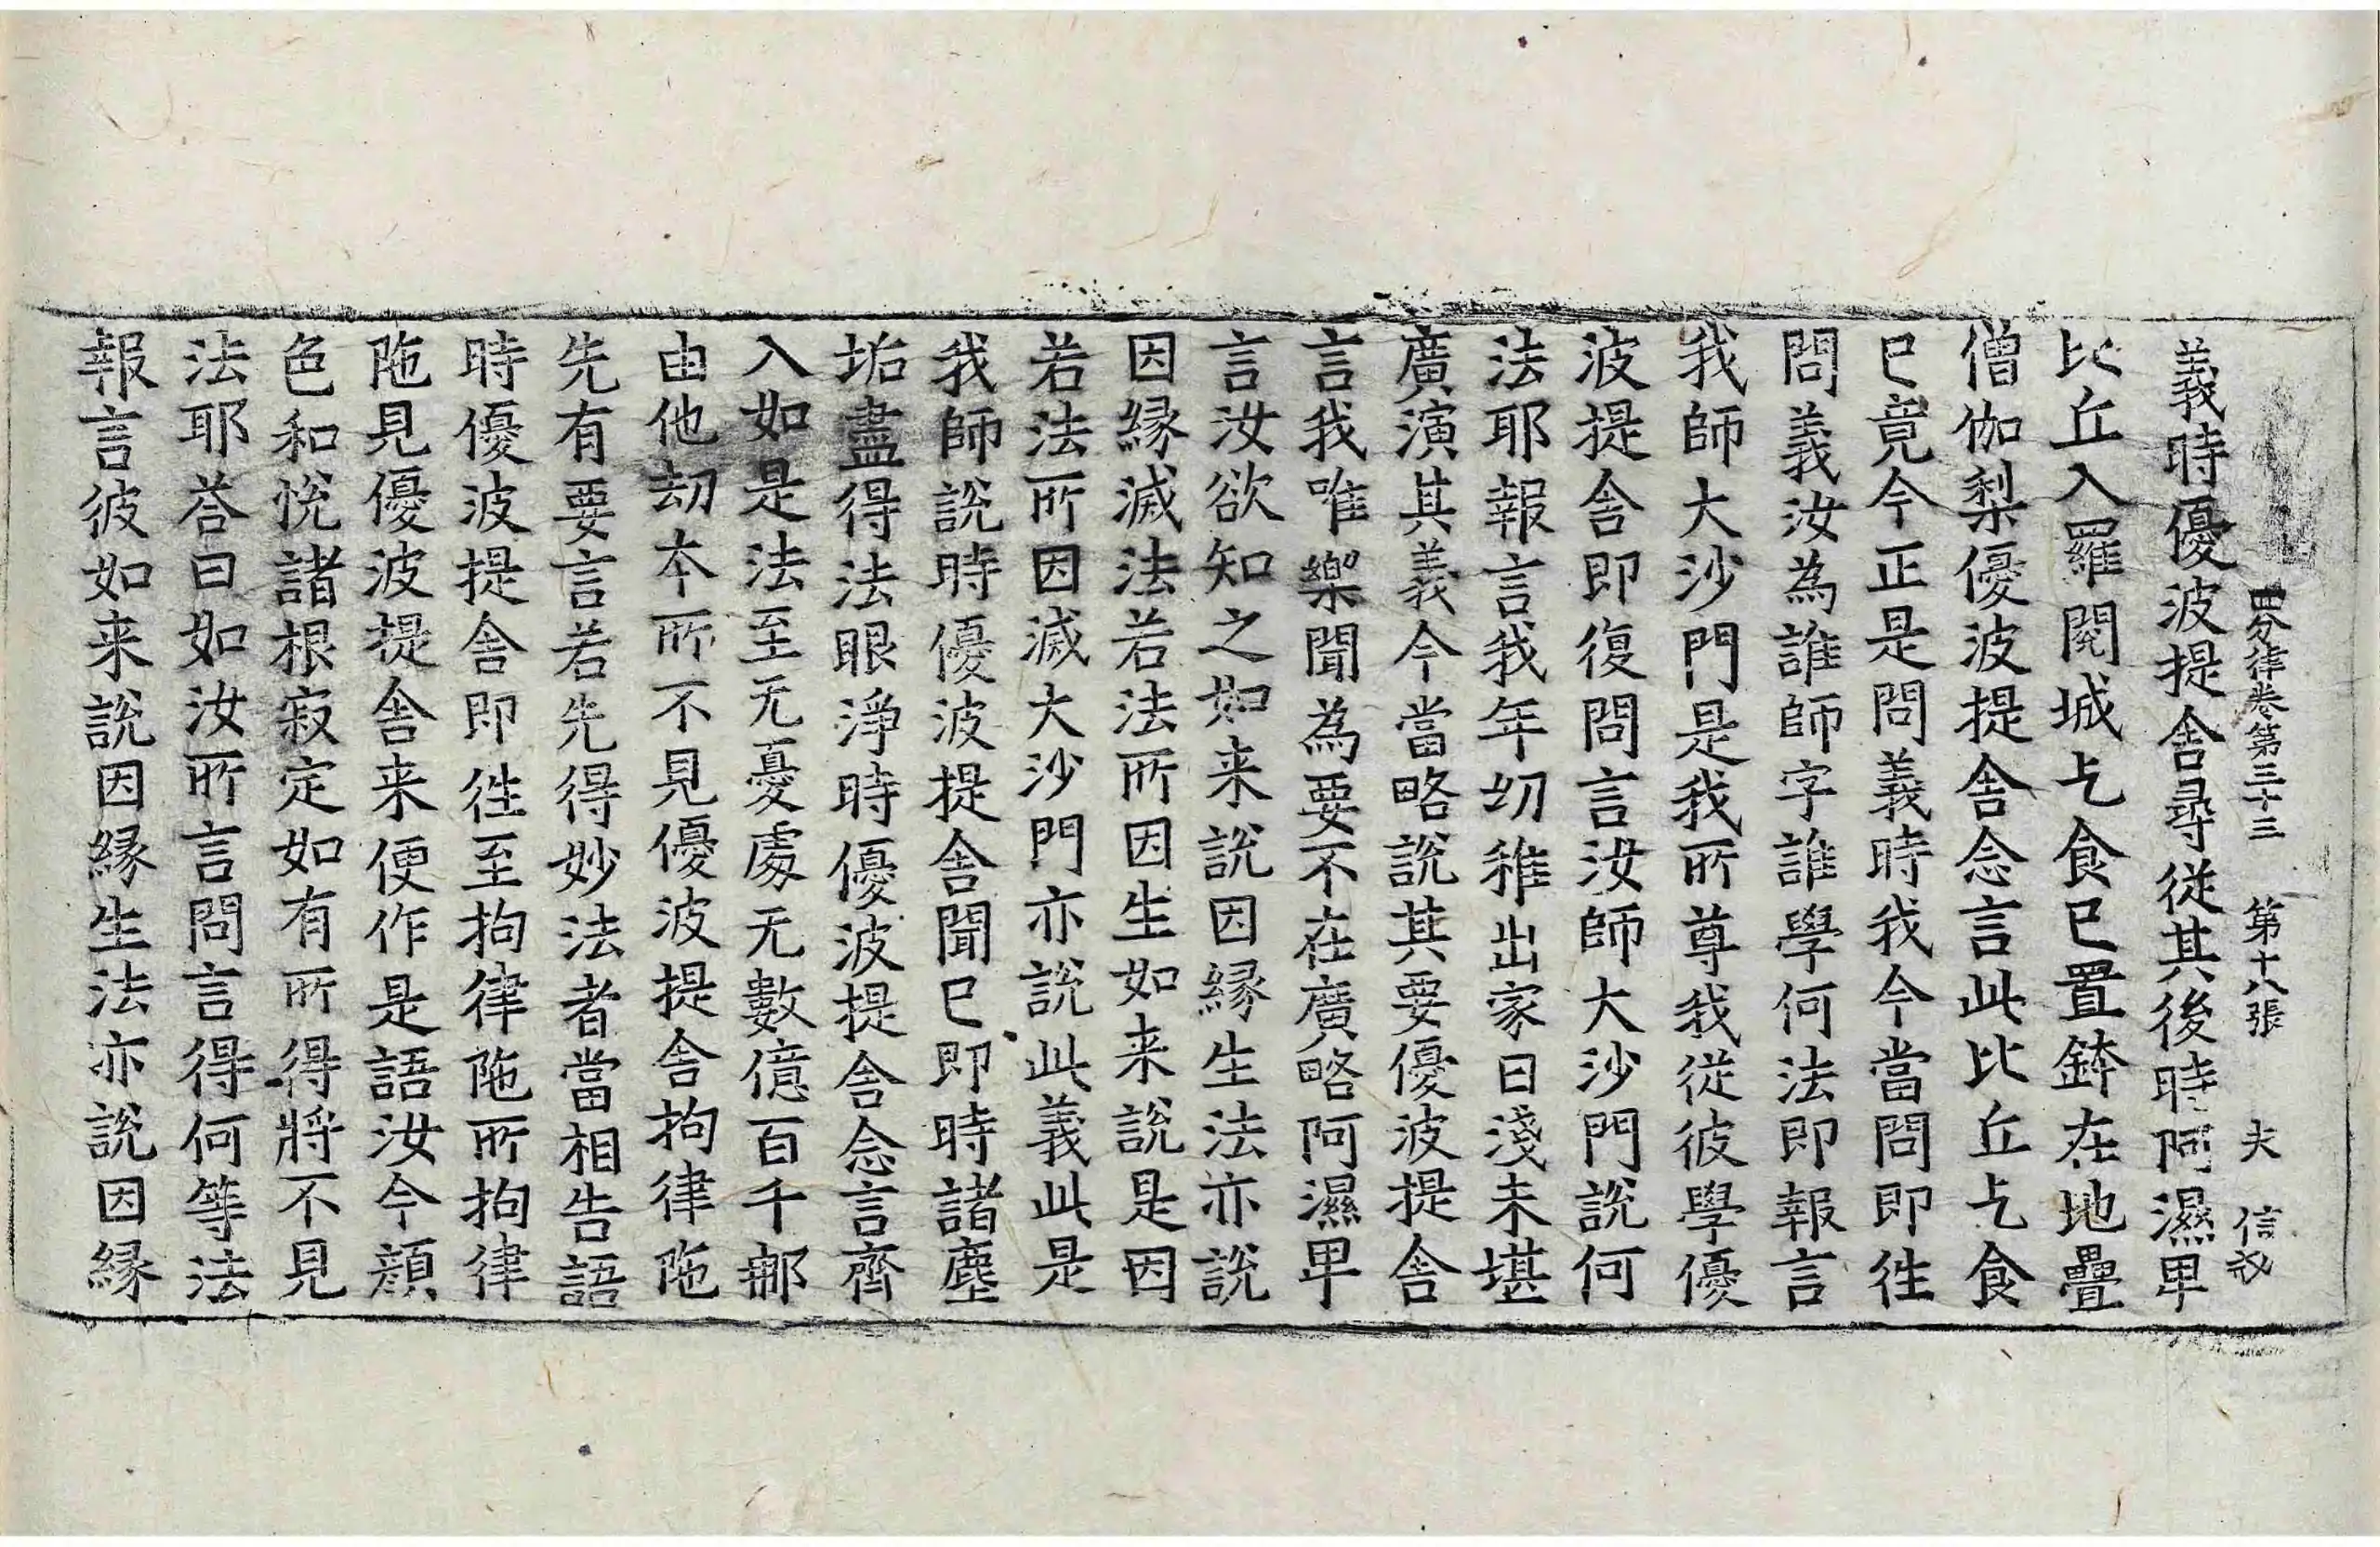 四分律卷第三十三 第十八張 夫 信
義時優波提舍尋從其後時阿濕卑
比丘入羅閱城乞食已置鉢在地疊
僧伽梨優波提舍念言此比丘乞食
已竟今正是問義時我今當問即徃
問義汝為誰師字誰學何法即報言
我師大沙門是我所尊我從彼學優
波提舍即復問言汝師大沙門說何
法耶報言我年㓜稚出家日淺未堪
廣演其義今當略說其要優波提舍
言我唯樂聞為要不在廣略阿濕卑
言汝欲知之如来說因緣生法亦說
因緣滅法若法所因生如来說是因
若法所因滅大沙門亦說此義此是
我師說時優波提舍聞已即時諸塵
垢盡得法眼淨時優波提舍念言齊
入如是法至无憂處无數億百千那
由他劫本所不見優波提舍拘律陁
先有要言若先得妙法者當相告語
時優波提舍即徃至拘律陁所拘律
陁見優波提舍来便作是語汝今顔
色和悅諸根寂定如有所得將不見
法耶荅曰如汝所言問言得何等法
報言彼如来說因緣生法亦說因緣